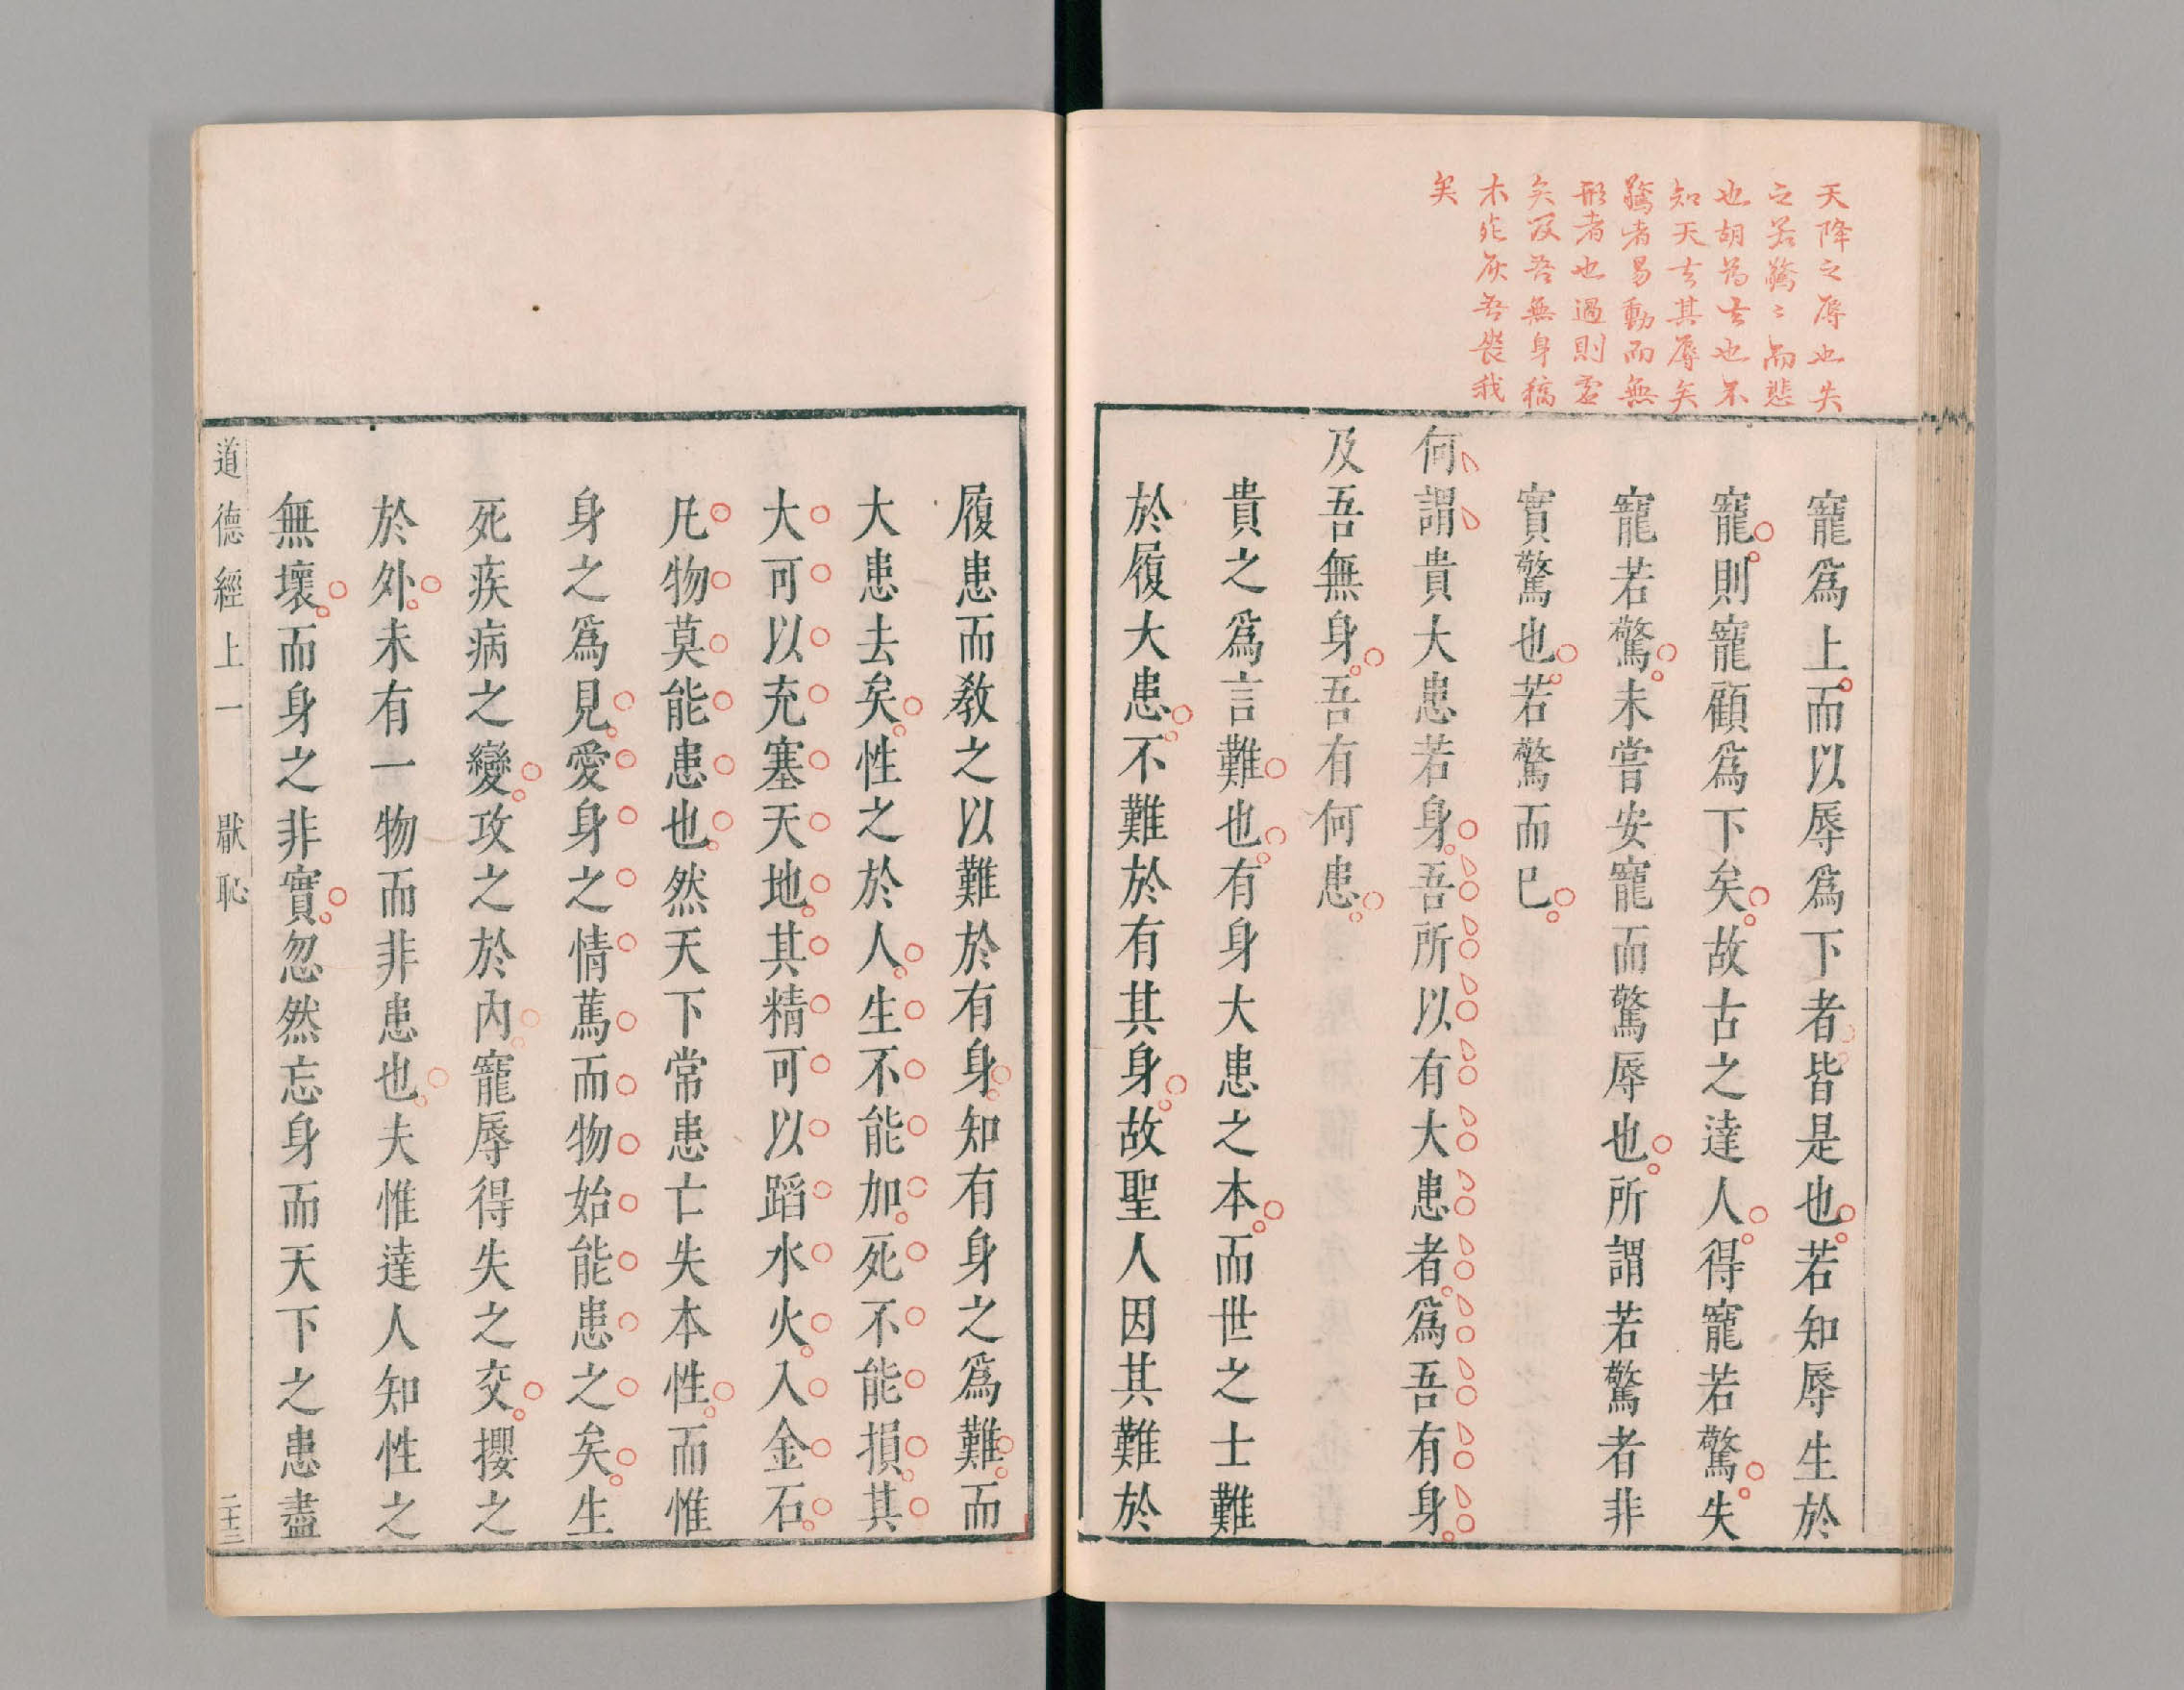 天降之辱也失
之若驚〻而悲
也胡為也不
知天其辱矣
驚者易動而無
形者也過則虛
矣及吾無身稿
木死灰吾喪我
矣
寵爲上而以辱爲下者皆是也若知辱生於
寵則寵顧爲下矣故古之達人得寵若驚失
寵若驚未嘗安寵而驚辱也所謂若驚者非
實驚也若驚而已
何謂貴大患若身吾所以有大患者爲吾有身
及吾無身吾有何患
貴之爲言難也有身大患之本而世之士難
於履大患不難於有其身故聖人因其難於
履患而教之以難於有身知有身之爲難而
大患去矣性之於人生不能加死不能損其
大可以充塞天地其精可以蹈水火入金石
凡物莫能患也然天下常患亡失本性而惟
身之爲見愛身之情篤而物始能患之矣生
死疾病之變攻之於內寵辱得失之交攖之
於外未有一物而非患也夫惟達人知性之
無壞而身之非實忽然忘身而天下之患盡
道德經上一 厭恥 二十三